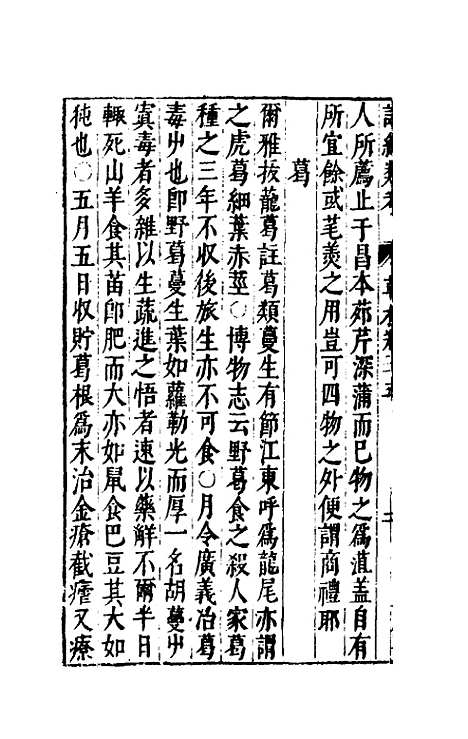 人所薦止于昌本茆芹深蒲而巳物之爲葅盖自有
所宜餘或芼羮之用豈可四物之外便謂商禮耶
葛
爾雅拔龍葛註葛類蔓生有節江東呼爲龍尾亦謂
之虎葛細葉赤莖○博物志云野葛食之殺人家葛
種之三年不収後旅生亦不可食○月令廣義冶葛
毒艸也卽野葛蔓生葉如蘿勒光而厚一名胡蔓艸
寘毒者多雜以生蔬進之悟者速以藥觧不爾半日
輙死山羊食其苗卽肥而大亦如鼠食巴豆其大如
㹠也○五月五日収貯葛根爲末治金瘡截瘧又療